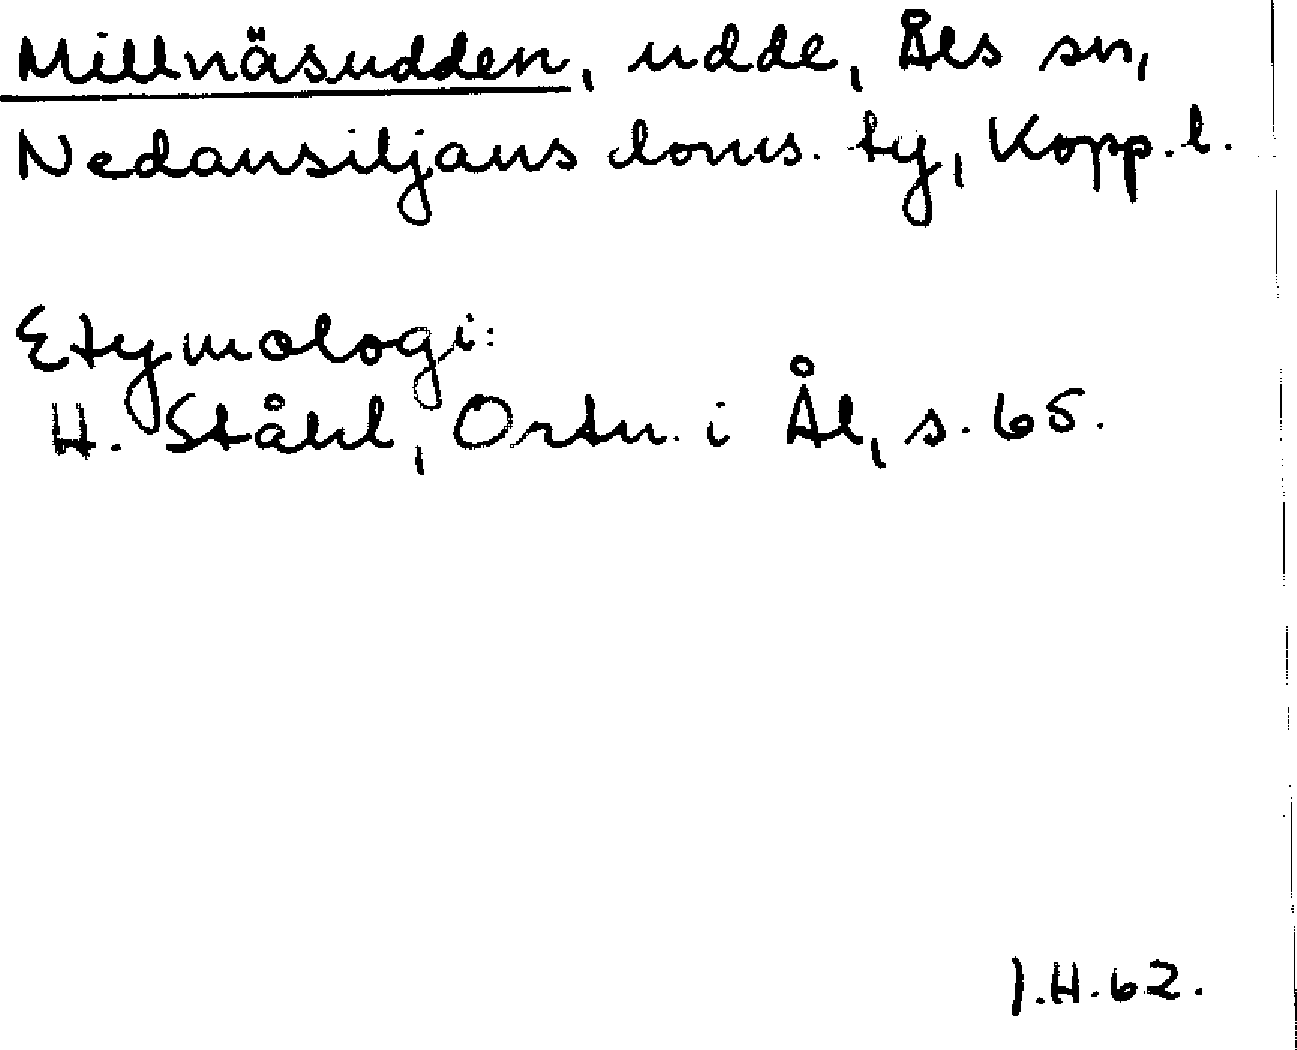 Millnäsudden, udde, Åls sn,
Nedansiljans doms. ty, Kopp. l.
Etymologi:
H. Ståhl, Ortn. i Ål, s. 65.
I.H.62.